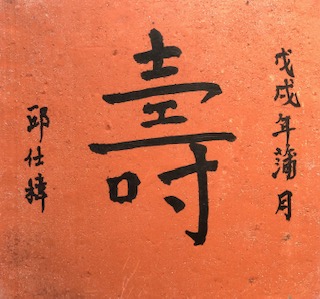 戊戌年蒲月
壽
邱仕緯